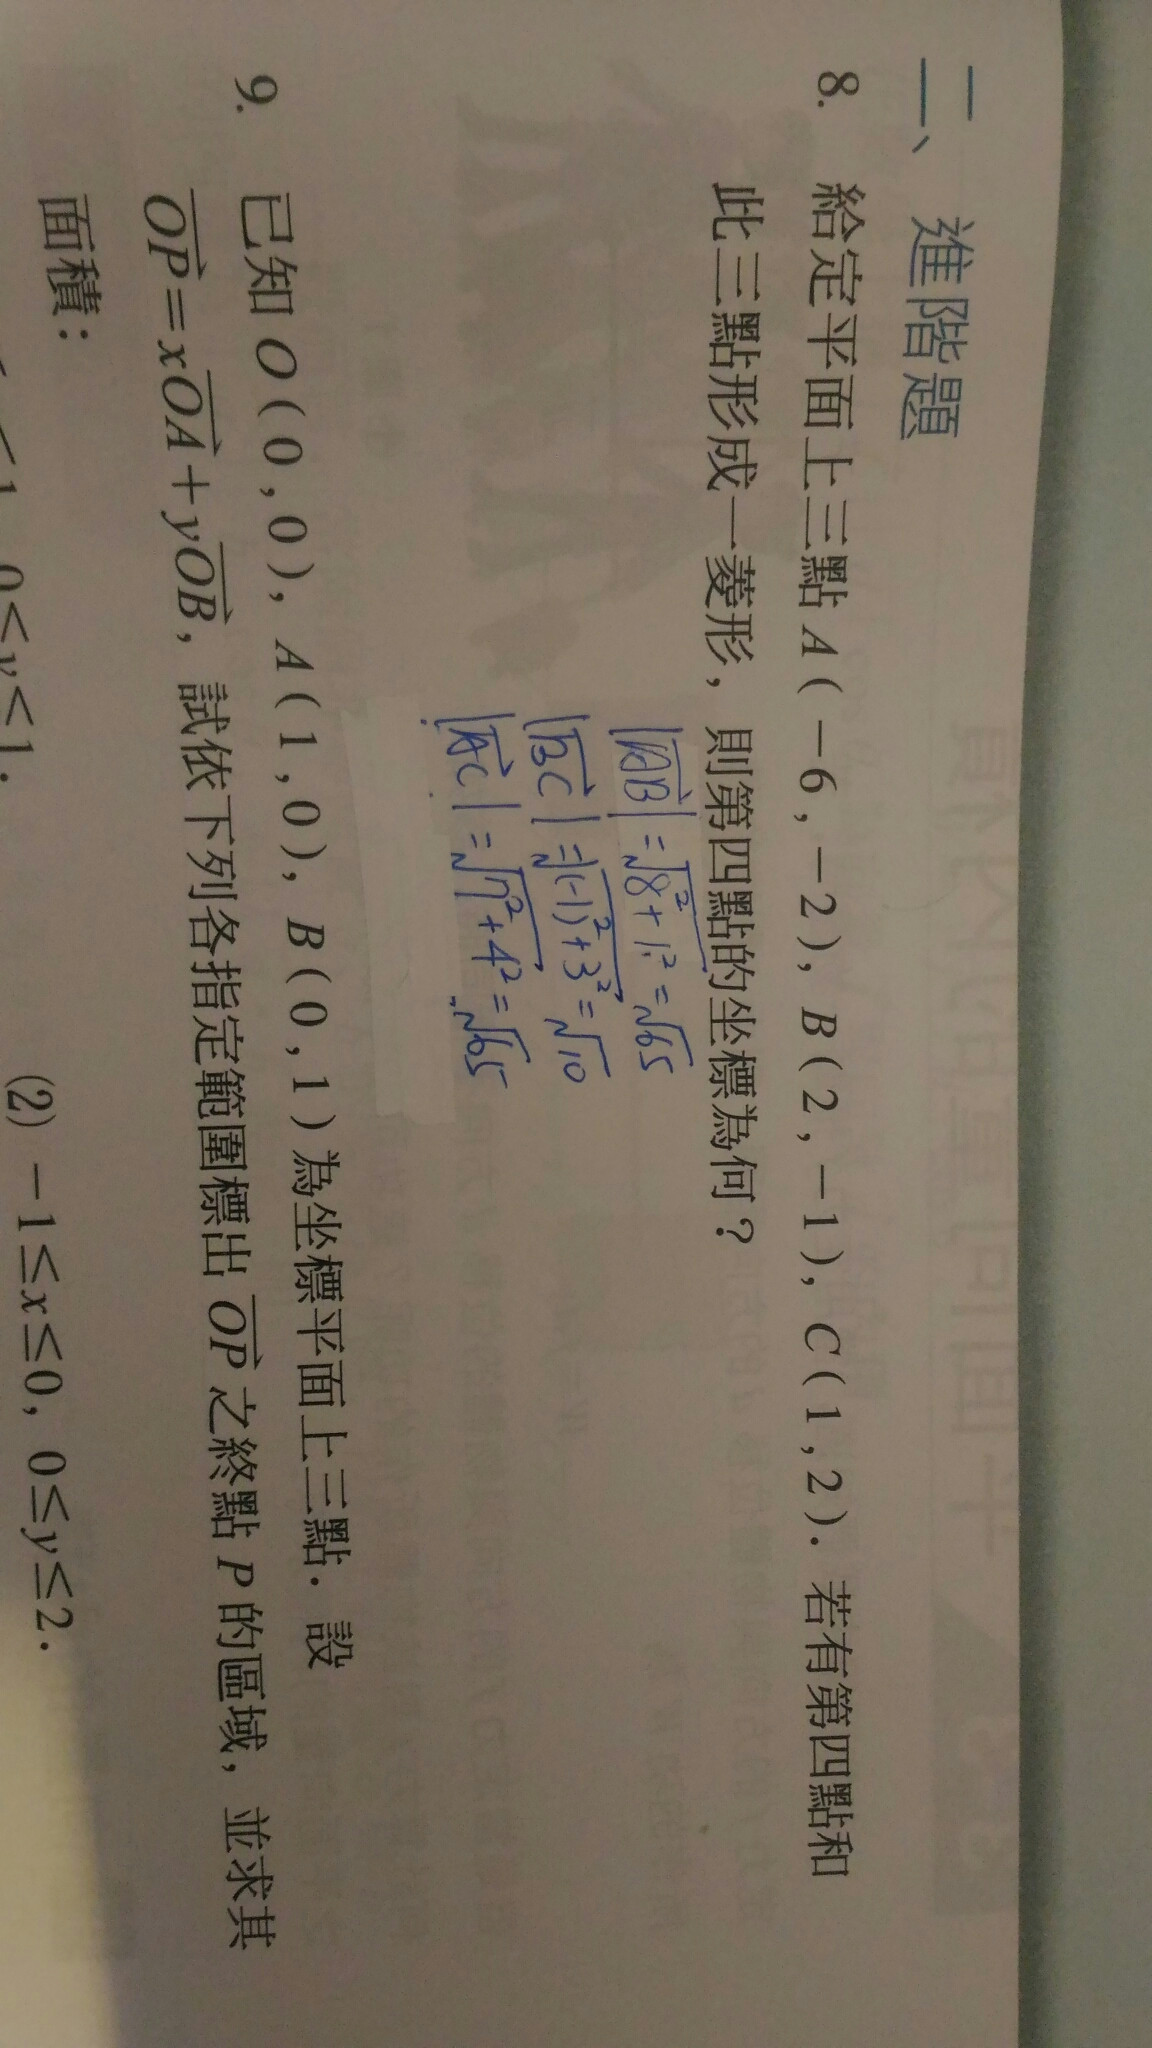 二、進階題
8. 給定平面上三點 A(-6,-2), B(2,-1), C(1,2). 若有第四點和
此三點形成一菱形, 則第四點的坐標為何?
|AB| = √8²+1² = √65
|BC| = √(-1)²+3² = √10
|AC| = √7²+4² = √65
9. 已知 O(0,0), A(1,0), B(0,1) 為坐標平面上三點. 設
OP = xOA + yOB, 試依下列各指定範圍標出 OP 之終點 P 的區域, 並求其
面積:
1, 0≤y≤1. (2) -1≤x≤0, 0≤y≤2.